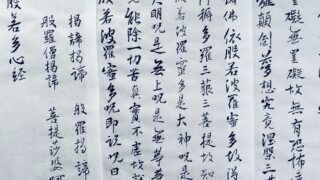 罣礙無罣礙故無有恐怖
離顛倒夢想究竟涅槃三
諸佛依般若波羅蜜多故得
耨多羅三藐三菩提故知
般若波羅蜜多是大神呪是
大明呪是無上呪是無等等
呪能除一切苦真實不虛故說
般若波羅蜜多呪即說呪曰
揭諦揭諦 般羅揭諦
般羅僧揭諦 菩提莎婆訶
般若多心經